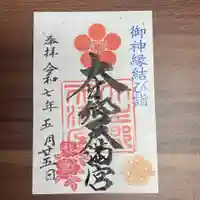 御神縁結び詣
奉拝
天満宮
令和七年五月廿五日